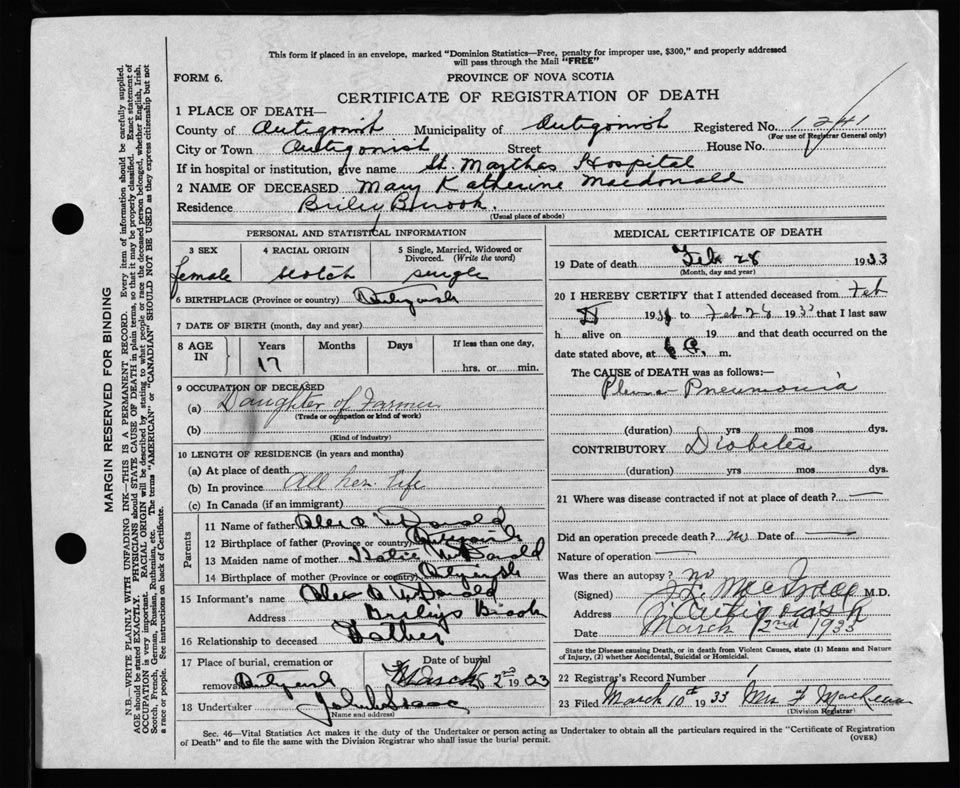 This form if placed in an envelope, marked "Dominion Statistics—Free, penalty for improper use, $300," and properly addressed
will pass through the Mail "FREE"
FORM 6.
PROVINCE OF NOVA SCOTIA
CERTIFICATE OF REGISTRATION OF DEATH
1 PLACE OF DEATH—
County of Antigonish Municipality of Antigonish Registered No. 1241
(For use of Registrar General only)
City or Town Antigonish Street House No.
If in hospital or institution, give name St. Marthas Hospital
2 NAME OF DECEASED Mary Katherine Macdonald
Residence Briley Brook.
(Usual place of abode)
PERSONAL AND STATISTICAL INFORMATION
3 SEX 4 RACIAL ORIGIN 5 Single, Married, Widowed or
Divorced. (Write the word)
female scotch single
6 BIRTHPLACE (Province or country) Antigonish
7 DATE OF BIRTH (month, day and year)
8 AGE IN Years Months Days If less than one day,
17 hrs. or min.
9 OCCUPATION OF DECEASED
(a) Daughter of Farmer
(Trade or occupation or kind of work)
(b)
(Kind of industry)
10 LENGTH OF RESIDENCE (in years and months)
(a) At place of death
(b) In province All her life
(c) In Canada (if an immigrant)
Parents
11 Name of father Alex A McDonald
12 Birthplace of father (Province or country) Antigonish
13 Maiden name of mother Katie McDonald
14 Birthplace of mother (Province or country) Antigonish
15 Informant's name Alex A McDonald
Address Brileys Brook
16 Relationship to deceased Father
17 Place of burial, cremation or Date of burial
removal Antigonish March 2nd 1933
18 Undertaker John
(Name and address)
MEDICAL CERTIFICATE OF DEATH
19 Date of death Feb 28 1933
(Month, day and year)
20 I HEREBY CERTIFY that I attended deceased from Feb
19 to Feb 28 1933 that I last saw
h alive on 19 and that death occurred on
the date stated above, at m.
The CAUSE of DEATH was as follows:—
Pneumonia
(duration) yrs mos dys.
CONTRIBUTORY Diabetes
(duration) yrs mos dys.
21 Where was disease contracted if not at place of death? —
Did an operation precede death? no Date of —
Nature of operation —
Was there an autopsy? no
(Signed) M.D.
Address Antigonish
Date March 2nd 1933
State the Disease causing Death, or in death from Violent Causes, state (1) Means and Nature
of Injury, (2) whether Accidental, Suicidal or Homicidal.
22 Registrar's Record Number 1
23 Filed March 10th 1933 Mrs F
(Division Registrar)
Sec. 46—Vital Statistics Act makes it the duty of the Undertaker or person acting as Undertaker to obtain all the particulars required in the "Certificate of Registration
of Death" and to file the same with the Division Registrar who shall issue the burial permit.
(OVER)
MARGIN RESERVED FOR BINDING
N.B.—WRITE PLAINLY WITH UNFADING INK—THIS IS A PERMANENT RECORD. Every item of information should be carefully supplied.
AGE should be stated EXACTLY. PHYSICIANS should STATE CAUSE OF DEATH in plain terms, so that it may be properly classified. Exact statement of
OCCUPATION is very important. RACIAL ORIGIN will be described by stating to what people or race the deceased person belonged, whether English, Irish,
Scotch, French, German, Russian, Ruthenian, etc. The terms "AMERICAN" or "CANADIAN" SHOULD NOT BE USED as they express citizenship but not
a race or people. See instructions on back of Certificate.